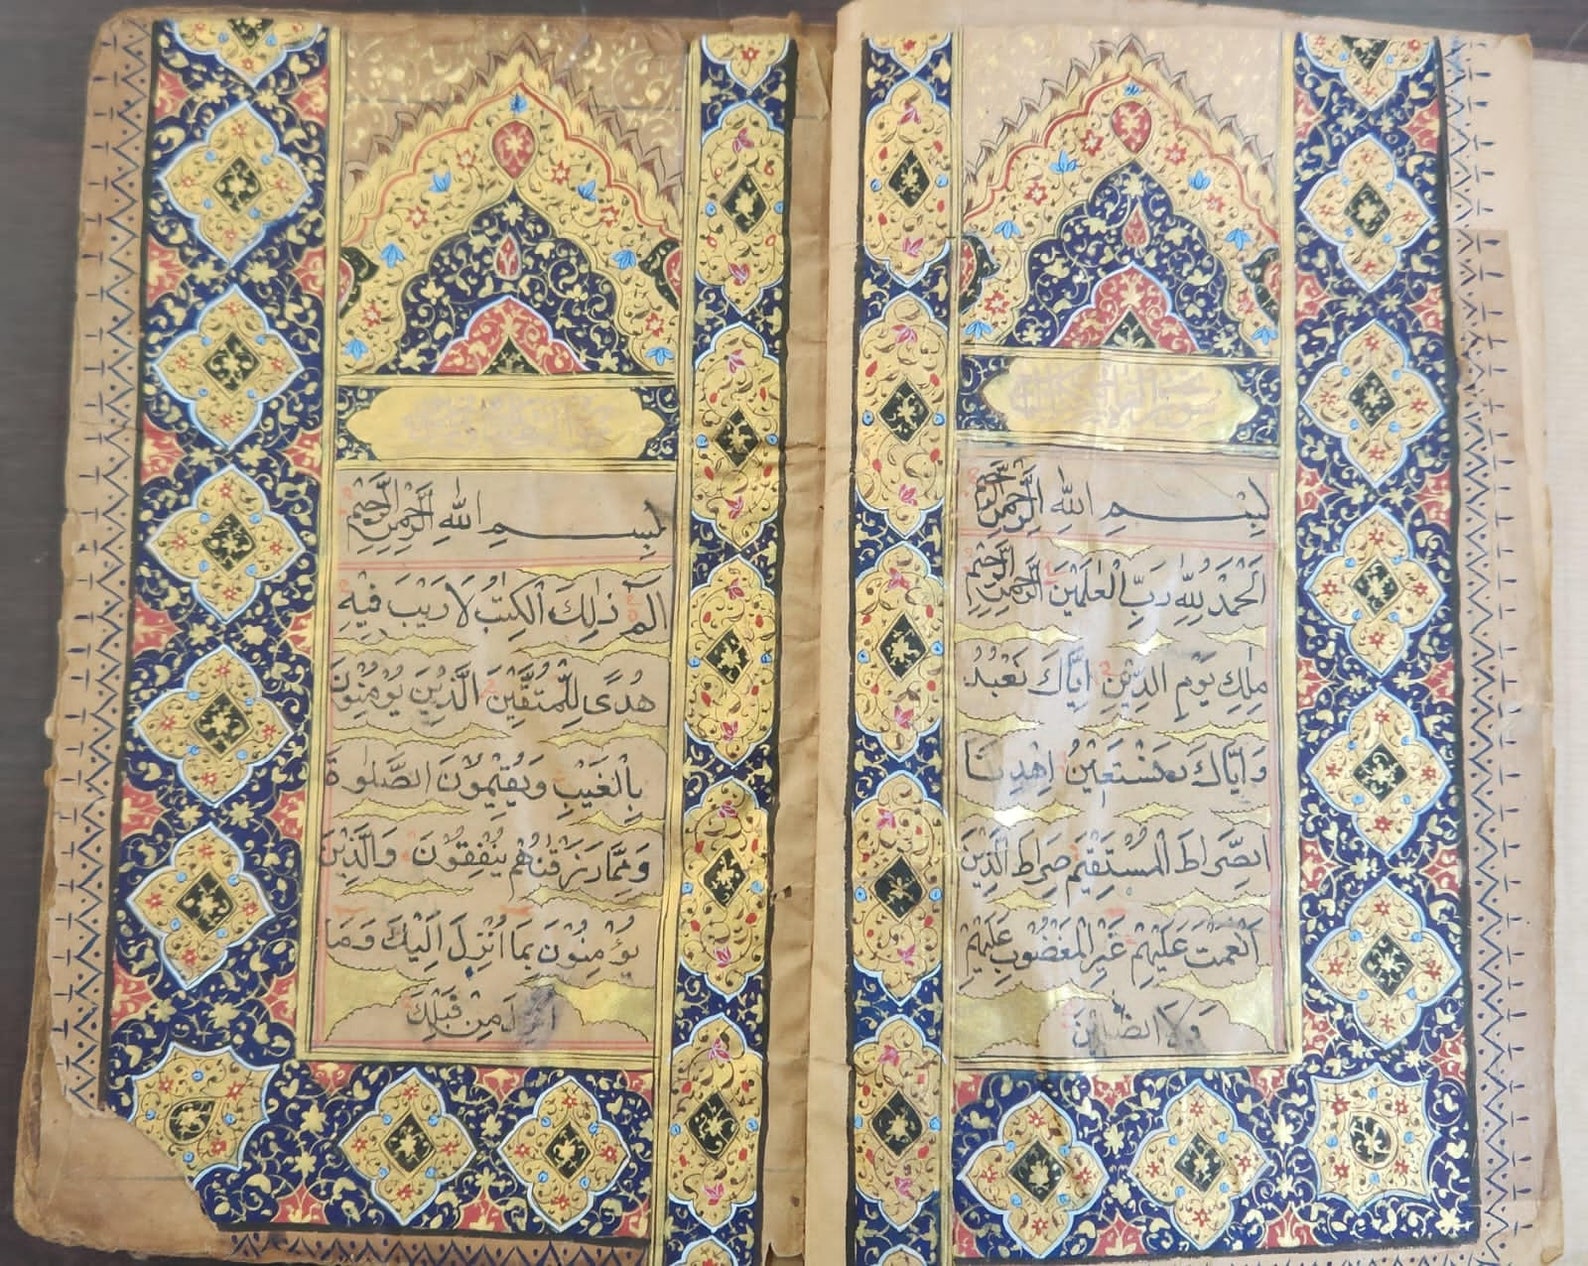 بِسْمِ اللّٰهِ الرَّحْمٰنِ الرَّحِیْمِ
اَلْحَمْدُ لِلّٰهِ رَبِّ الْعٰلَمِیْنَ الرَّحْمٰنِ الرَّحِیْمِ
مٰلِكِ یَوْمِ الدِّیْنِ اِیَّاكَ نَعْبُدُ
وَاِیَّاكَ نَسْتَعِیْنُ اِهْدِنَا
الصِّرَاطَ الْمُسْتَقِیْمَ صِرَاطَ الَّذِیْنَ
اَنْعَمْتَ عَلَیْهِمْ غَیْرِ الْمَغْضُوْبِ عَلَیْهِمْ
وَلَا الضَّآلِّیْنَ
بِسْمِ اللّٰهِ الرَّحْمٰنِ الرَّحِیْمِ
الٓمٓ ذٰلِكَ الْكِتٰبُ لَا رَیْبَ فِیْهِ
هُدًی لِلْمُتَّقِیْنَ الَّذِیْنَ یُؤْمِنُوْنَ
بِالْغَیْبِ وَیُقِیْمُوْنَ الصَّلٰوةَ
وَمِمَّا رَزَقْنٰهُمْ یُنْفِقُوْنَ وَالَّذِیْنَ
یُؤْمِنُوْنَ بِمَا اُنْزِلَ اِلَیْكَ وَمَا
اُنْزِلَ مِنْ قَبْلِكَ